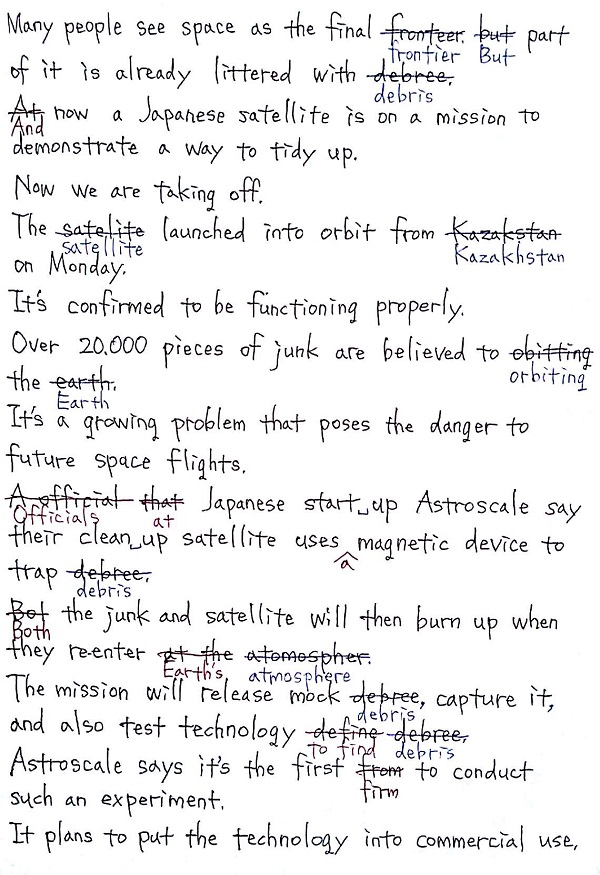 Many people see space as the final fronteer. but part
frontier But
of it is already littered with debree.
debris
At now a Japanese satellite is on a mission to
And
demonstrate a way to tidy up.
Now we are taking off.
The satelite launched into orbit from Kazakstan
satellite Kazakhstan
on Monday.
It's confirmed to be functioning properly.
Over 20.000 pieces of junk are believed to obitting
orbiting
the earth.
Earth
It's a growing problem that poses the danger to
future space flights.
A official that Japanese start up Astroscale say
Officials at
their clean up satellite uses magnetic device to
a
trap debree.
debris
Bot the junk and satellite will then burn up when
Both
they re-enter at the atomospher.
Earth's atmosphere
The mission will release mock debree, capture it,
debris
and also test technology define debree,
to find debris
Astroscale says it's the first from to conduct
firm
such an experiment.
It plans to put the technology into commercial use,